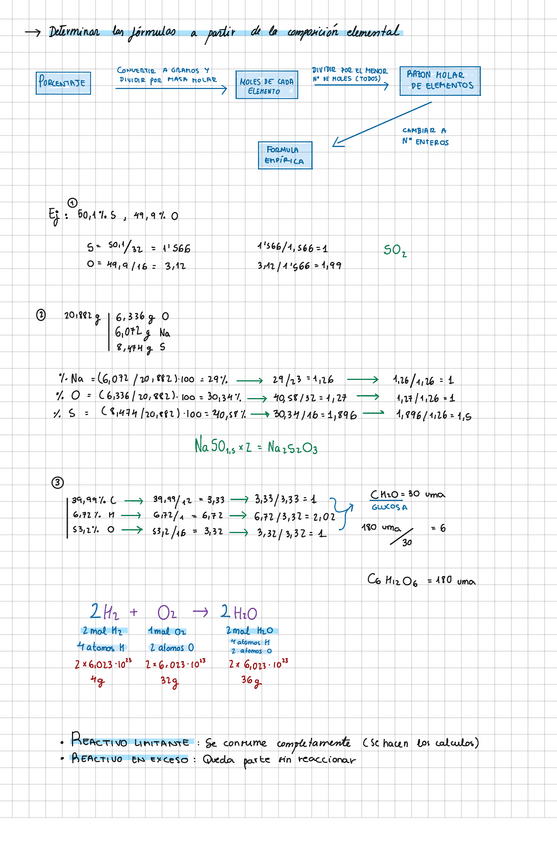 → Determinar las fórmulas a partir de la composición elemental
PORCENTAJE
CONVERTIR A GRAMOS Y
DIVIDIR POR MASA MOLAR
MOLES DE CADA
ELEMENTO
DIVIDIR POR EL MENOR
Nº DE MOLES (TODOS)
RAZON MOLAR
DE ELEMENTOS
CAMBIAR A
Nº ENTEROS
FORMULA
EMPÍRICA
①
Ej: 50,1% S , 49,9% O
S = 50,1/32 = 1'566 1'566/1,566 = 1 SO₂
O = 49,9/16 = 3,12 3,12/1'566 = 1,99
② 20,882 g 6,336 g O
6,072 g Na
8,474 g S
% Na = (6,072 / 20,882)·100 = 29% → 29/23 = 1,26 → 1,26/1,26 = 1
% O = (6,336 / 20,882)·100 = 30,34% → 40,58/32 = 1,27 → 1,27/1,26 = 1
% S = (8,474 / 20,882)·100 = 40,58% → 30,34/16 = 1,896 → 1,896/1,26 = 1,5
NaSO₁,₅ x 2 = Na₂S₂O₃
③
39,99% C → 39,99/12 = 3,33 → 3,33/3,33 = 1
6,72% H → 6,72/1 = 6,72 → 6,72/3,32 = 2,02
53,2% O → 53,2/16 = 3,32 → 3,32/3,32 = 1
CH₂O = 30 uma
GLUCOSA
180 uma / 30 = 6
C₆H₁₂O₆ = 180 uma
2H₂ + O₂ → 2H₂O
2 mol H₂ 1 mol O₂ 2 mol H₂O
4 atomos H 2 atomos O 4 atomos H
2 atomos O
2 x 6,023·10²³ 2 x 6,023·10²³ 2 x 6,023·10²³
4g 32g 36g
• REACTIVO LIMITANTE : Se consume completamente (Se hacen los calculos)
• REACTIVO EN EXCESO : Queda parte sin reaccionar